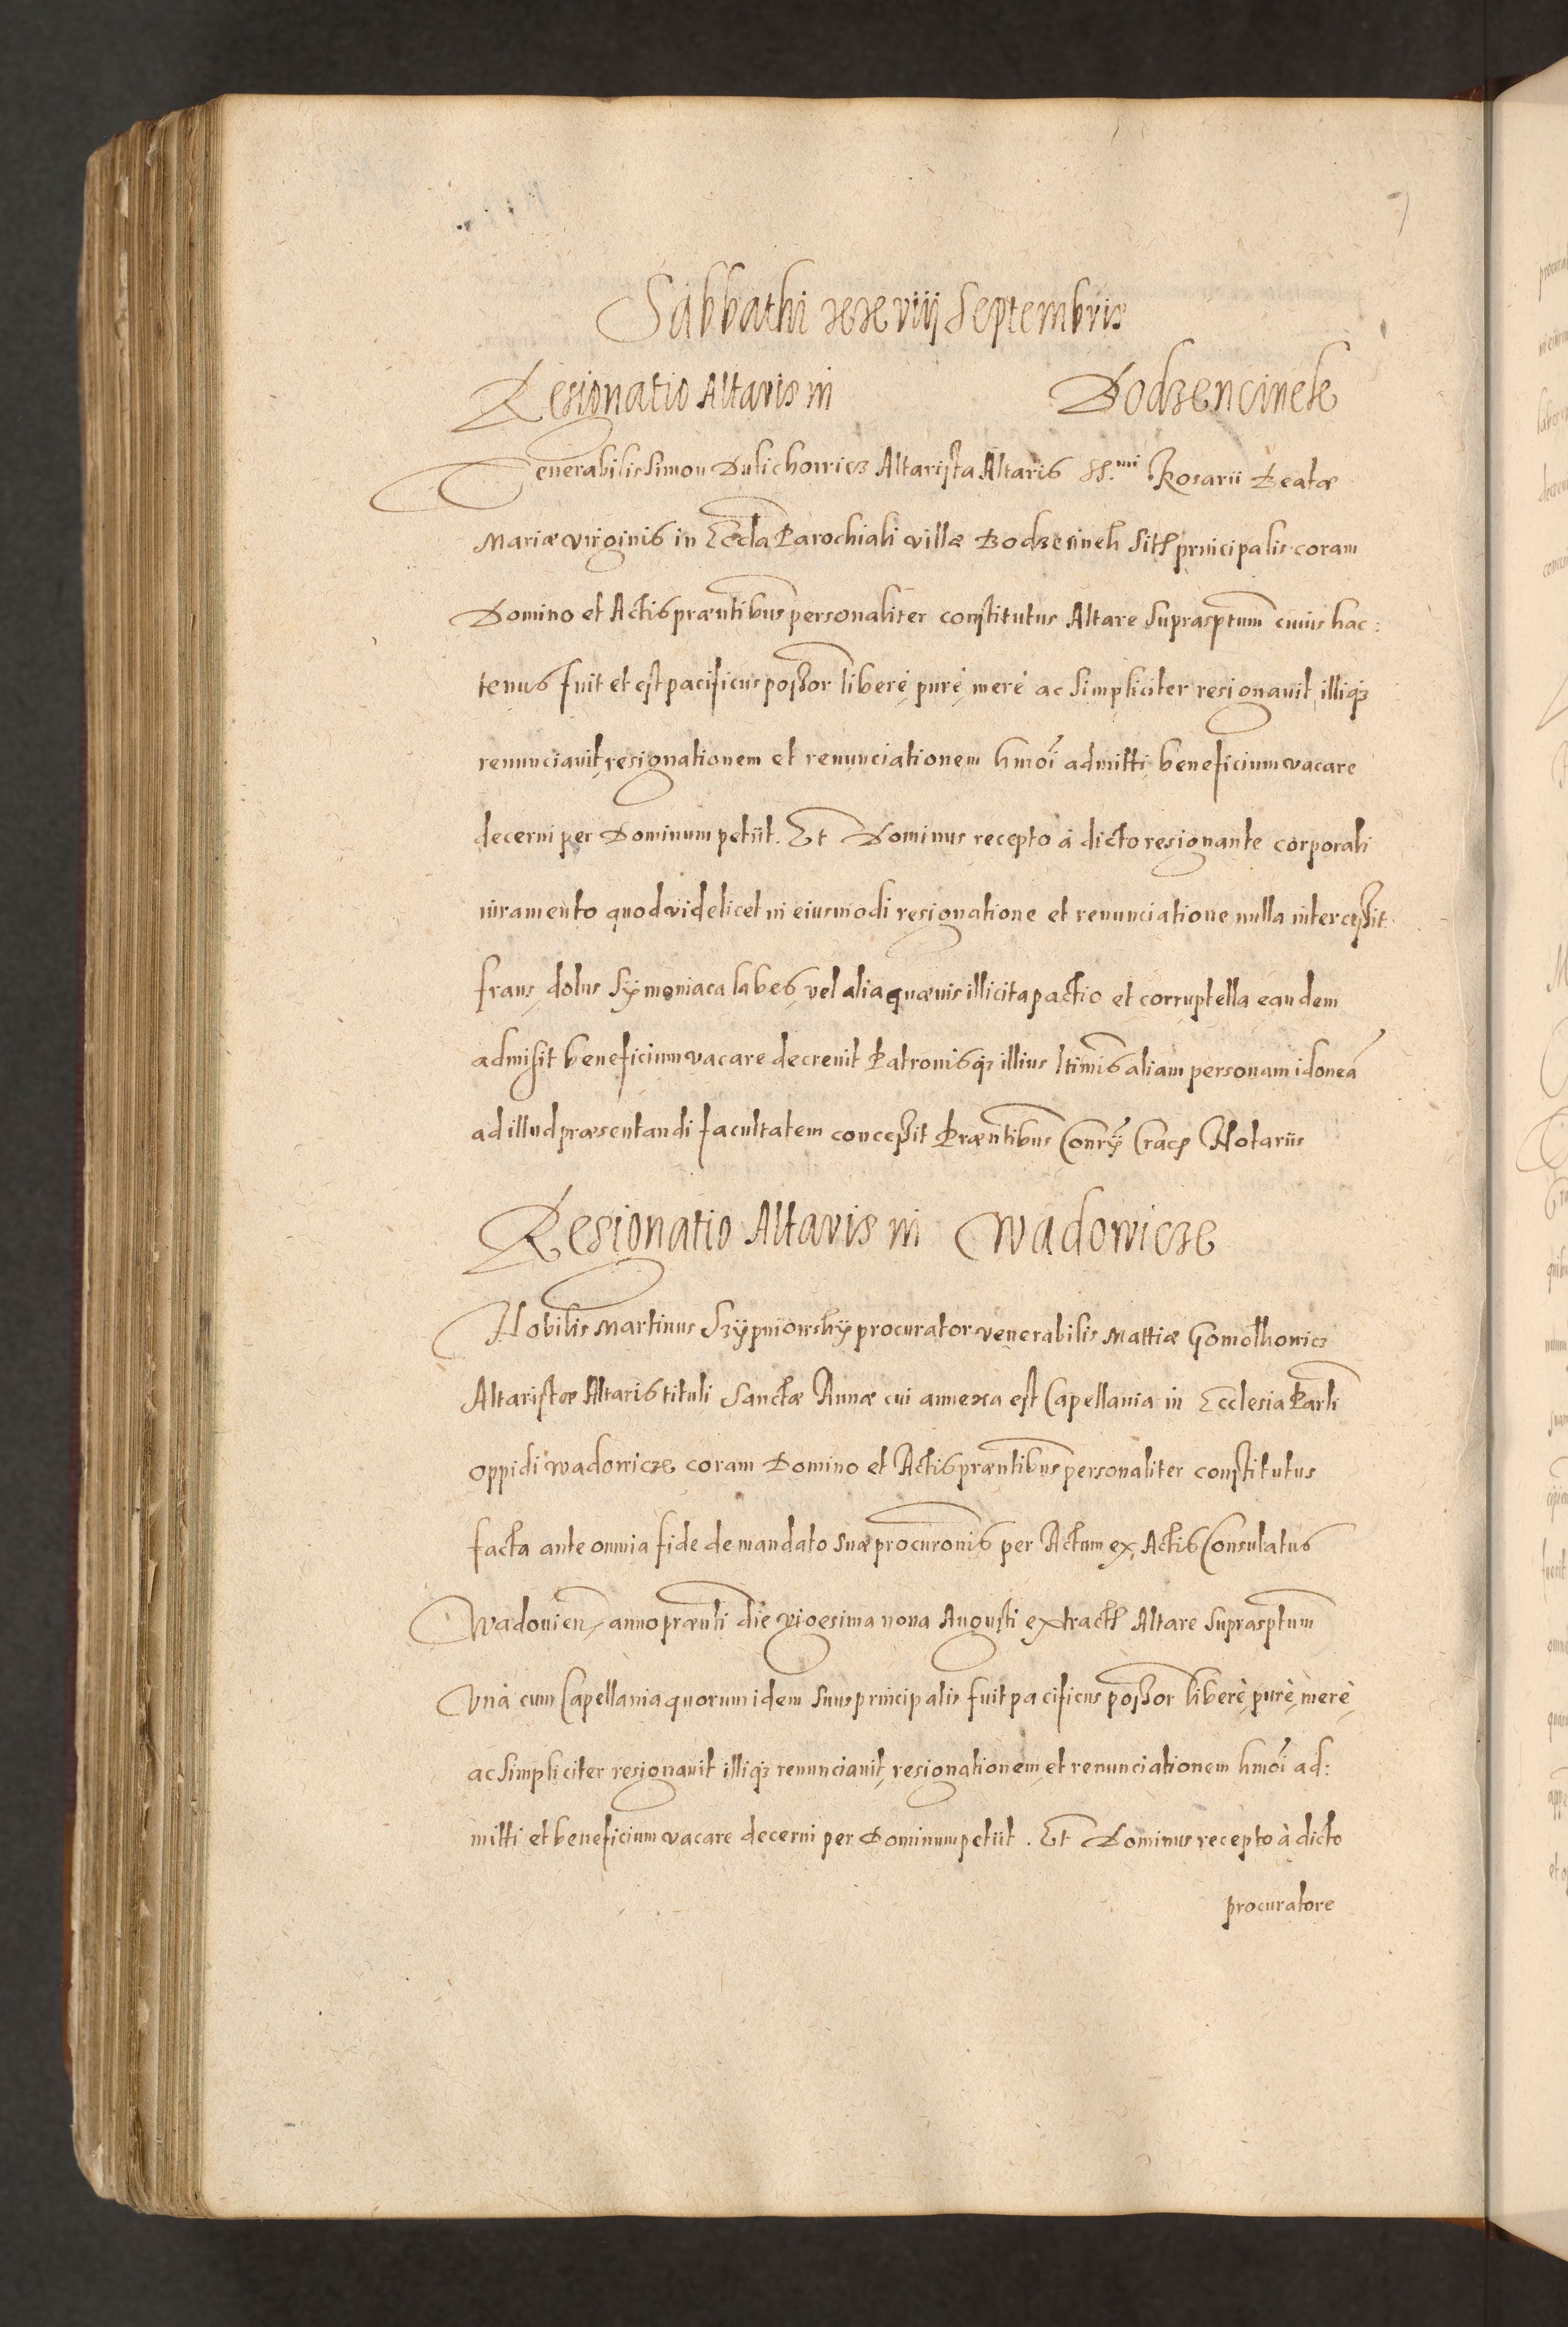 Sabbathi xxviij Septembris
Resignatio Altaris in Bodzencinek
Venerabilis Simon Dulichowicz Altarista Altaris SS.mi Rosarii Beatæ
Mariæ virginis in Eccła Parochiali villæ Bodzecineh sitħ principalis coram
Domino et Actis præntibus personaliter constitutus Altare suprasptum cuius hac:
tenus fuit et est pacificus poßor liberè, purè, merè ac simpliciter resignauit, illiqꝫ
renunciauit, resignationem et renunciationem hmoi admitti, beneficium vacare
decerni per Dominum petiit. Et Dominus recepto à dicto resignante corporali
iuramento quod videlicet in eiusmodi resignatione et renunciatione nulla interceßit
fraus, dolus sÿmoniaca labes, vel alia quæuis illicita pactio et corruptella eandem
admisit beneficium vacare decreuit Patronisqꝫ illius ltimis aliam personam idoneā
ad illud præsentandi facultatem conceßit Præntibus Conrÿ Cracꝭ Notariis
Resignatio Altaris in Wadowicze
Nobilis Martinus Szÿpniowskÿ procurator venerabilis Mattiæ Gomolkowicz
Altaristæ Altaris tituli Sanctæ Annæ cui annexa est Capellania in Ecclesia Parli
oppidi Wadowicze coram Domino et Actis præntibus personaliter constitutus
facta ante omnia fide de mandato suæ procuronis per Actum ex Actis Consulatus
Wadouicn̄, anno prænti die vigesima nona Augusti extractħ Altare suprasptum
Vnà cum Capellania quorum idem suus principalis fuit pacificus poßor liberè, purè, merè,
ac simpliciter resignauit illiqꝫ renunciauit, resignationem, et renunciationem hmoi ad:
mitti et beneficium vacare decerni per Dominum petiit. Et Dominus recepto à dicto
procuratore